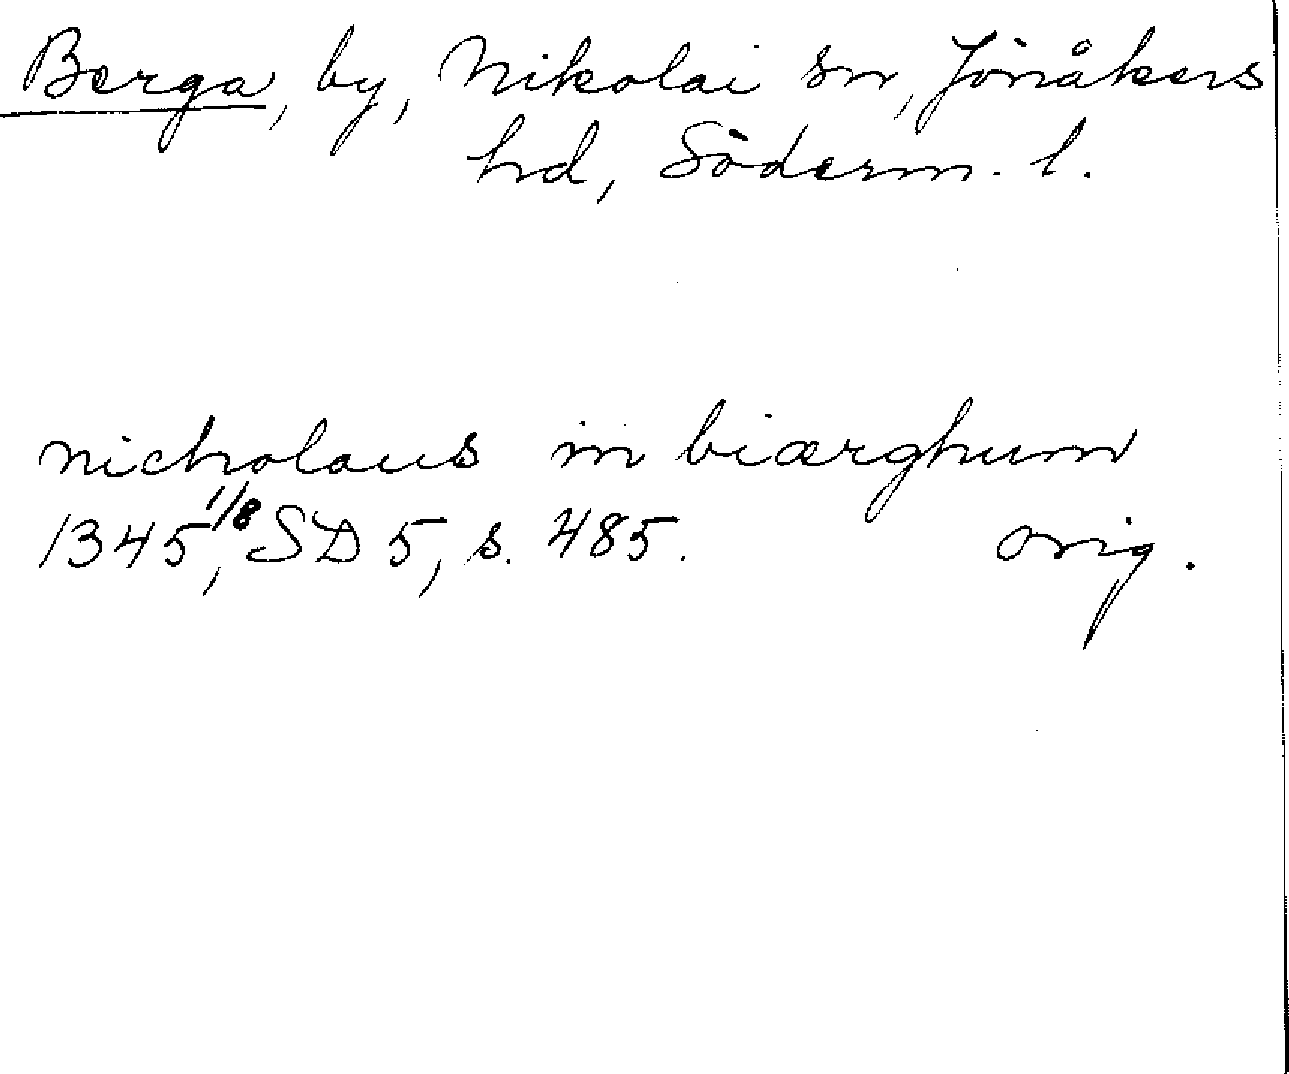 Berga, by, Nikolai sn, Jönåkers
hd, Söderm. l.
nicholaus in biærghum
1345 1/8, SD 5, s. 485. orig.